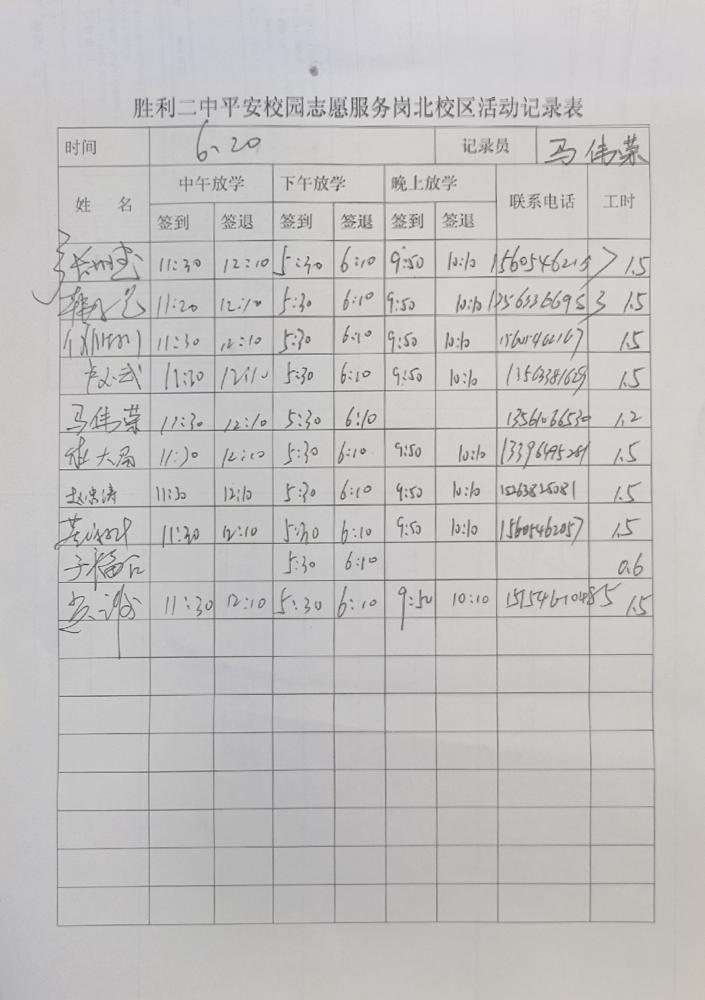 胜利二中平安校园志愿服务岗北校区活动记录表
时间 6.20 记录员 马伟荣
姓名 中午放学 下午放学 晚上放学 联系电话 工时
签到 签退 签到 签退 签到 签退
11:30 12:10 5:30 6:10 9:50 10:10 1.5
11:20 12:10 5:30 6:10 9:50 10:10 1.5
11:30 12:10 5:30 6:10 9:50 10:10 15605462167 1.5
11:30 12:10 5:30 6:10 9:50 10:10 1.5
马伟荣 11:30 12:10 5:30 6:10 13561066530 1.2
11:30 12:10 5:30 6:10 9:50 10:10 13396495281 1.5
11:30 12:10 5:30 6:10 9:50 10:10 15263825081 1.5
11:30 12:10 5:30 6:10 9:50 10:10 15605462057 1.5
5:30 6:10 0.6
11:30 12:10 5:30 6:10 9:50 10:10 1.5